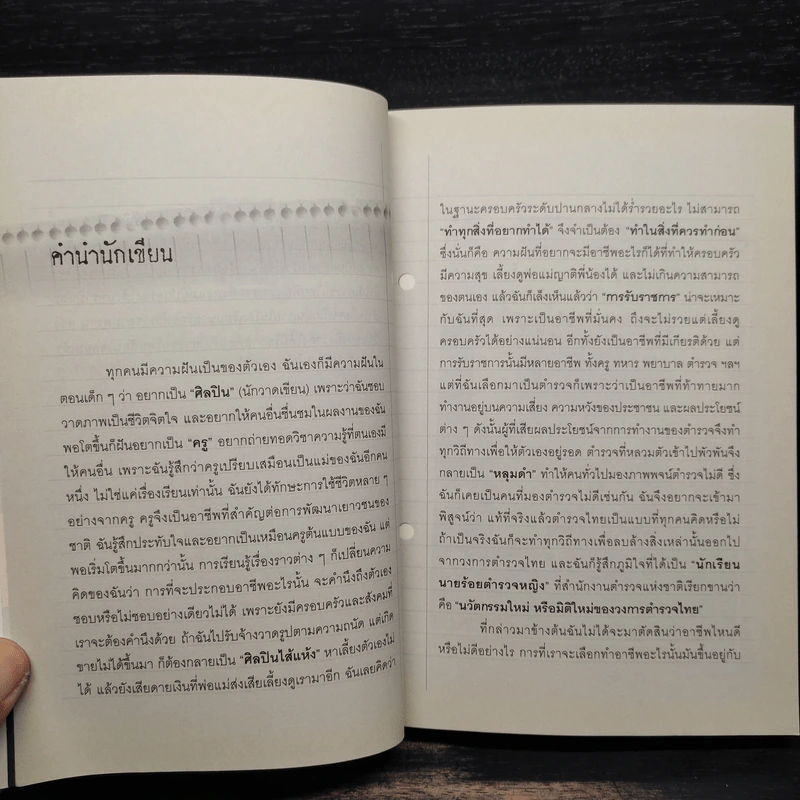 คำนำนักเขียน
ทุกคนมีความฝันเป็นของตัวเอง ฉันเองก็มีความฝันใน
ตอนเด็ก ๆ ว่า อยากเป็น “ศิลปิน” (นักวาดเขียน) เพราะว่าฉันชอบ
วาดภาพเป็นชีวิตจิตใจ และอยากให้คนอื่นชื่นชมในผลงานของฉัน
พอโตขึ้นก็ฝันอยากเป็น “ครู” อยากถ่ายทอดวิชาความรู้ที่ตนเองมี
ให้คนอื่น เพราะฉันรู้สึกว่าครูเปรียบเสมือนเป็นแม่ของฉันอีกคน
หนึ่ง ไม่ใช่แค่เรื่องเรียนเท่านั้น ฉันยังได้ทักษะการใช้ชีวิตหลาย ๆ
อย่างจากครู ครูจึงเป็นอาชีพที่สำคัญต่อการพัฒนาเยาวชนของ
ชาติ ฉันรู้สึกประทับใจและอยากเป็นเหมือนครูต้นแบบของฉัน แต่
พอเริ่มโตขึ้นมากกว่านั้น การเรียนรู้เรื่องราวต่าง ๆ ก็เปลี่ยนความ
คิดของฉันว่า การที่จะประกอบอาชีพอะไรนั้น จะคำนึงถึงตัวเอง
ชอบหรือไม่ชอบอย่างเดียวไม่ได้ เพราะยังมีครอบครัวและสังคมที่
เราจะต้องคำนึงด้วย ถ้าฉันไปรับจ้างวาดรูปตามความถนัด แต่เกิด
ขายไม่ได้ขึ้นมา ก็ต้องกลายเป็น “ศิลปินไส้แห้ง” หาเลี้ยงตัวเองไม่
ได้ แล้วยังเสียดายเงินที่พ่อแม่ส่งเสียเลี้ยงดูเรามาอีก ฉันเลยคิดว่า
ในฐานะครอบครัวระดับปานกลางไม่ได้ร่ำรวยอะไร ไม่สามารถ
“ทำทุกสิ่งที่อยากทำได้” จึงจำเป็นต้อง “ทำในสิ่งที่ควรทำก่อน”
ซึ่งนั่นก็คือ ความฝันที่อยากจะมีอาชีพอะไรก็ได้ที่ทำให้ครอบครัว
มีความสุข เลี้ยงดูพ่อแม่ญาติพี่น้องได้ และไม่เกินความสามารถ
ของตนเอง แล้วฉันก็เล็งเห็นแล้วว่า “การรับราชการ” น่าจะเหมาะ
กับฉันที่สุด เพราะเป็นอาชีพที่มั่นคง ถึงจะไม่รวยแต่เลี้ยงดู
ครอบครัวได้อย่างแน่นอน อีกทั้งยังเป็นอาชีพที่มีเกียรติด้วย แต่
การรับราชการนั้นมีหลายอาชีพ ทั้งครู ทหาร พยาบาล ตำรวจ ฯลฯ
แต่ที่ฉันเลือกมาเป็นตำรวจก็เพราะว่าเป็นอาชีพที่ท้าทายมาก
ทำงานอยู่บนความเสี่ยง ความหวังของประชาชน และผลประโยชน์
ต่าง ๆ ดังนั้นผู้ที่เสียผลประโยชน์จากการทำงานของตำรวจจึงทำ
ทุกวิถีทางเพื่อให้ตัวเองอยู่รอด ตำรวจที่หลวมตัวเข้าไปพัวพันจึง
กลายเป็น “หลุมดำ” ทำให้คนทั่วไปมองภาพพจน์ตำรวจไม่ดี ซึ่ง
ฉันก็เคยเป็นคนที่มองตำรวจไม่ดีเช่นกัน ฉันจึงอยากจะเข้ามา
พิสูจน์ว่า แท้ที่จริงแล้วตำรวจไทยเป็นแบบที่ทุกคนคิดหรือไม่
ถ้าเป็นจริงฉันก็จะทำทุกวิถีทางเพื่อลบล้างสิ่งเหล่านั้นออกไป
จากวงการตำรวจไทย และฉันก็รู้สึกภูมิใจที่ได้เป็น “นักเรียน
นายร้อยตำรวจหญิง” ที่สำนักงานตำรวจแห่งชาติเรียกขานว่า
คือ “นวัตกรรมใหม่ หรือมิติใหม่ของวงการตำรวจไทย”
ที่กล่าวมาข้างต้นฉันไม่ได้จะมาตัดสินว่าอาชีพไหนดี
หรือไม่ดีอย่างไร การที่เราจะเลือกทำอาชีพอะไรนั้นมันขึ้นอยู่กับ